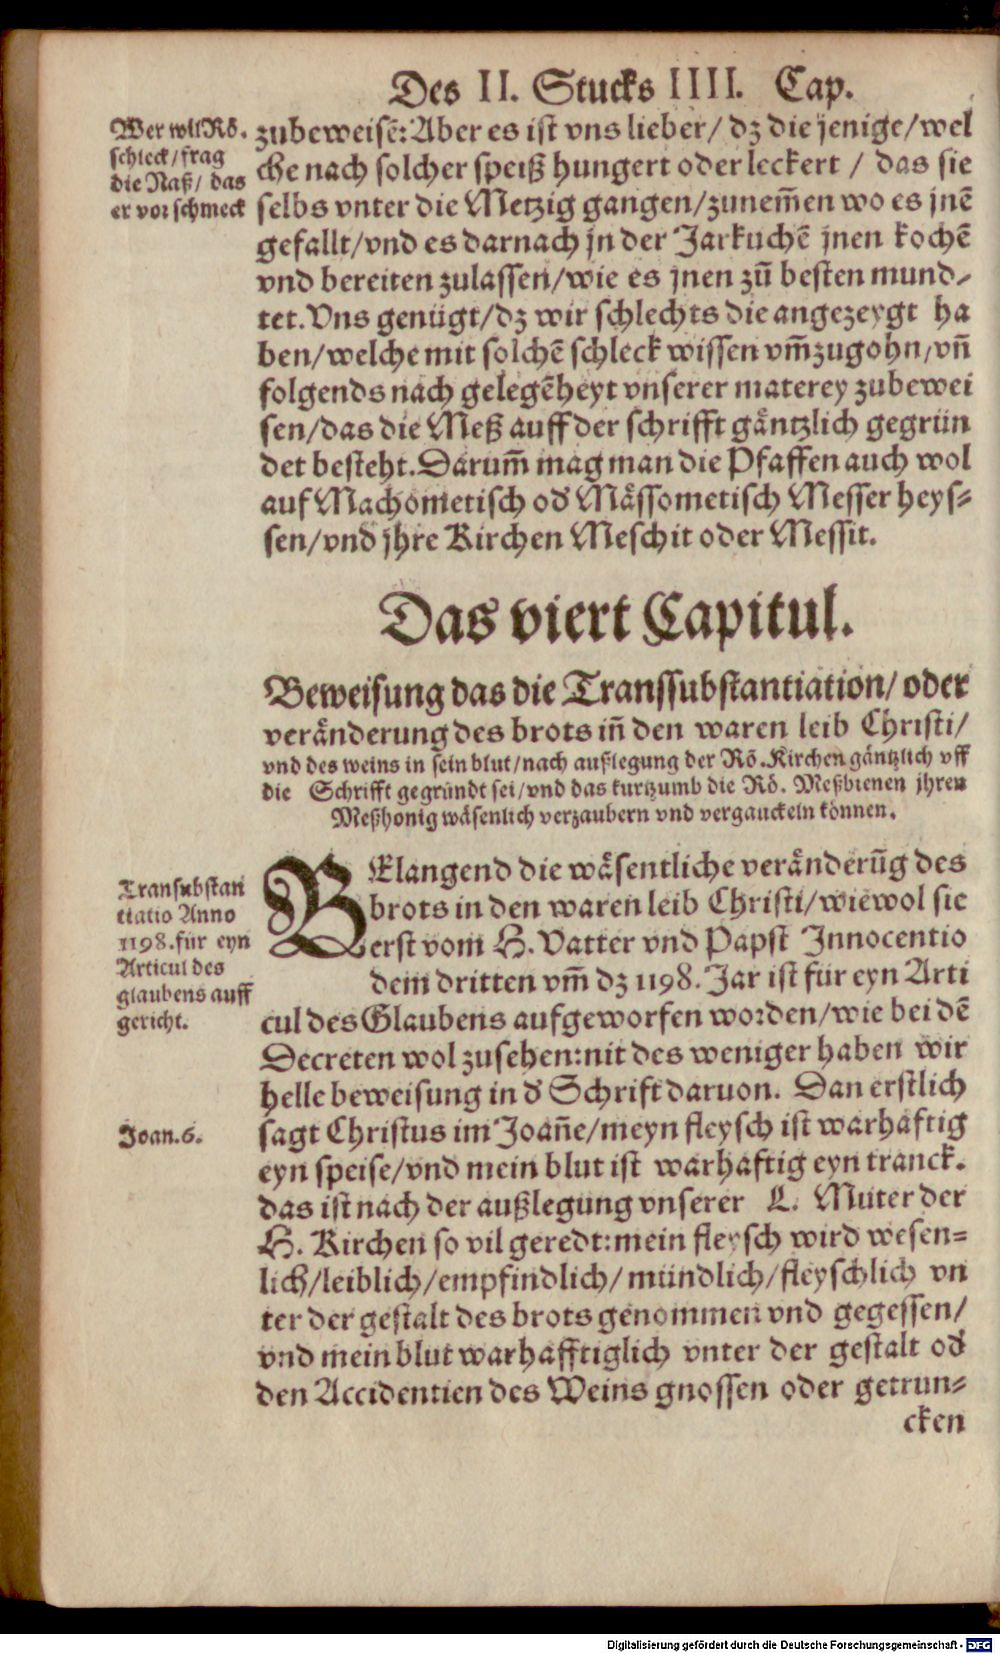 Des II. Stucks IIII. Cap.
Wer wil Rö.
schleck/frag
die Naß/ das
er vor schmeck
zubeweisē: Aber es ist vns lieber/ dz die jenige/wel
che nach solcher speiß hungert oder leckert / das sie
selbs vnter die Metzig gangen/zunem̃en wo es jnē
gefallt/vnd es darnach jn der Jarkuchē jnen kochē
vnd bereiten zulassen/wie es jnen zũ besten mund-
tet. Vns genügt/dz wir schlechts die angezeygt ha
ben/welche mit solchē schleck wissen vm̃zugohn/vñ
folgends nach gelegēheyt vnserer materey zubewei
sen/das die Meß auff der schrifft gäntzlich gegrün
det besteht. Darum̃ mag man die Pfaffen auch wol
auf Machometisch od Mässometisch Messer heys-
sen/vnd jhre Kirchen Meschit oder Messit.
Das viert Capitul.
Beweisung das die Transsubstantiation/ oder
veränderung des brots iñ den waren leib Christi/
vnd des weins in sein blut/nach außlegung der Rö. Kirchen gäntzlich vff
die Schrifft gegründt sei/vnd das kurtzumb die Rö. Meßbienen jhren
Meßhonig wäsenlich verzaubern vnd vergauckeln können.
Transubstan
tiatio Anno
1198. für eyn
Articul des
glaubens auff
gericht.
BElangend die wäsentliche veränderũg des
brots in den waren leib Christi/wiewol sie
erst vom H. Vatter vnd Papst Innocentio
dem dritten vm̃ dz 1198. Jar ist für eyn Arti
cul des Glaubens aufgeworfen worden/wie bei dē
Decreten wol zusehen: nit des weniger haben wir
helle beweisung in d Schrift daruon. Dan erstlich
Joan. 6.
sagt Christus im Joañe/meyn fleysch ist warhaftig
eyn speise/vnd mein blut ist warhaftig eyn tranck.
das ist nach der außlegung vnserer L. Muter der
H. Kirchen so vil geredt: mein fleysch wird wesen-
lich/leiblich/empfindlich/ mündlich/fleyschlich vn
ter der gestalt des brots genommen vnd gegessen/
vnd mein blut warhafftiglich vnter der gestalt od
den Accidentien des Weins gnossen oder getrun-
cken
Digitalisierung gefördert durch die Deutsche Forschungsgemeinschaft - DFG